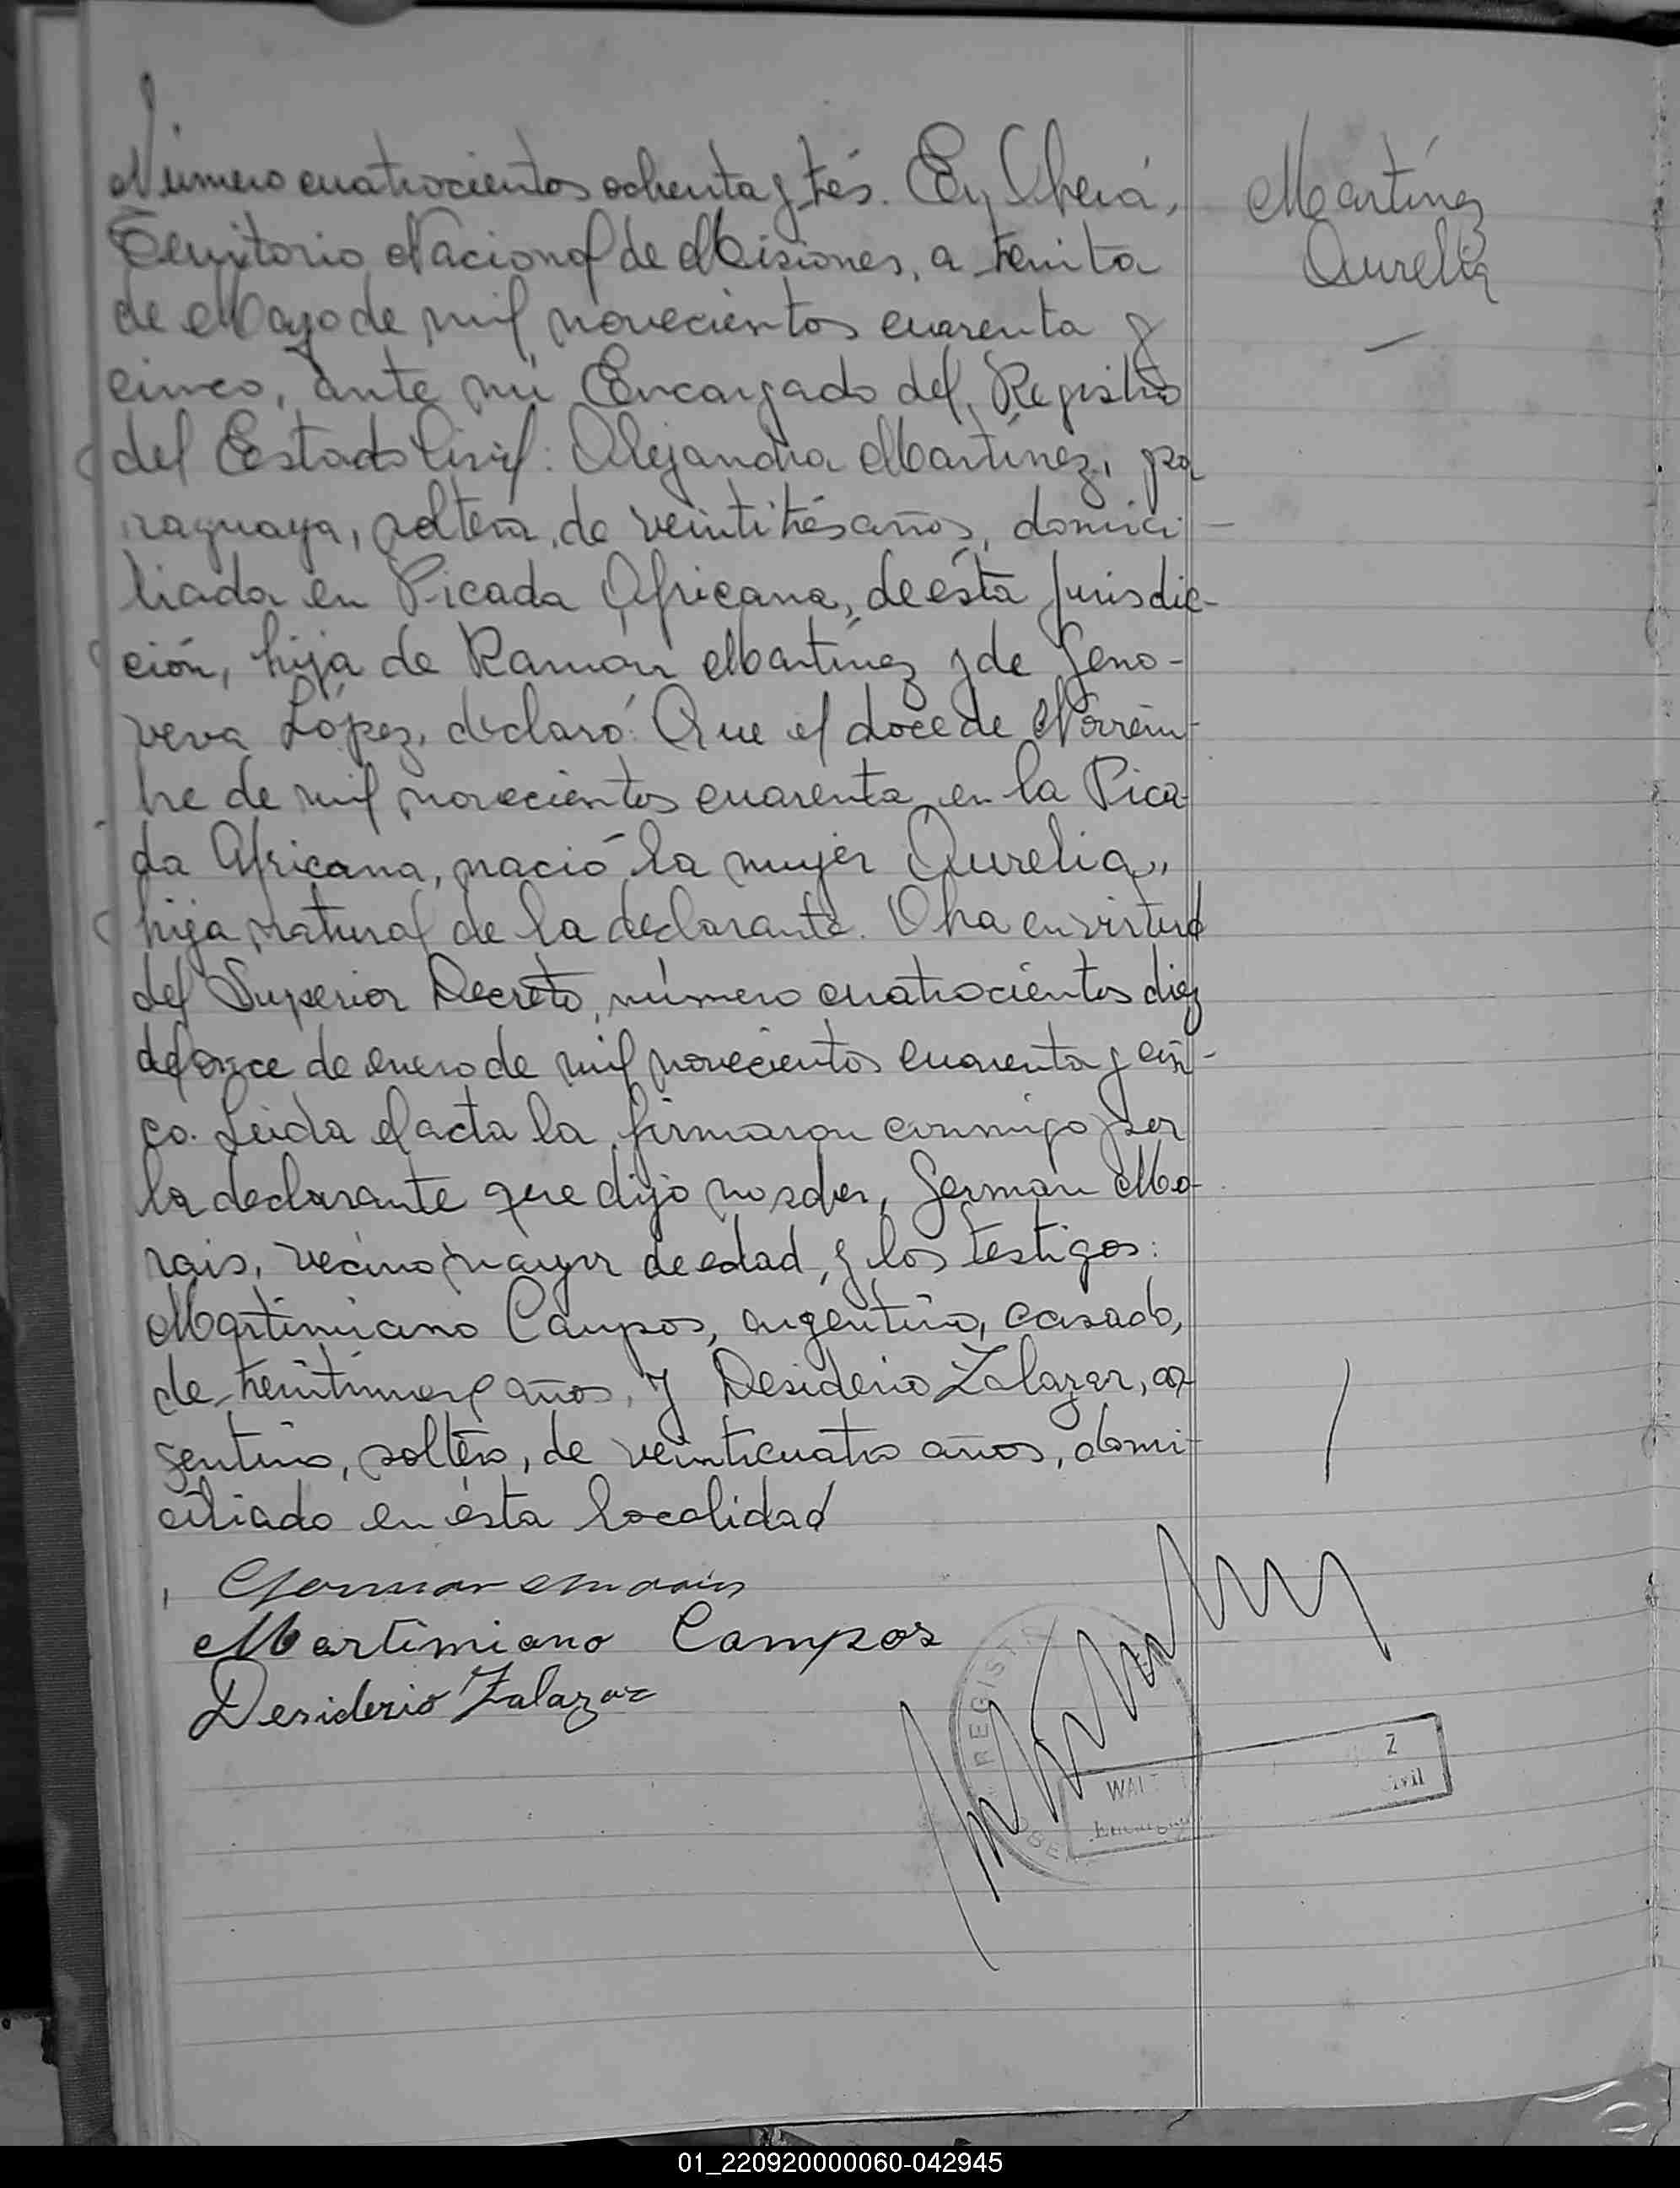 Número cuatrocientos ochenta y trés. En Oberá,
Territorio Nacional de Misiones, a treinta
de Mayo de mil novecientos cuarenta y
cinco, ante mi Encargado del Registro
del Estado Civil: Alejandra Martínez, pa
raguaya, soltera, de veintitrés años, domici-
liada en Picada Africana, de ésta jurisdic-
ción, hija de Ramón Martínez y de Geno-
veva López, declaró: Que el doce de Noviem-
bre de mil novecientos cuarenta en la Pica-
da Africana, nació la mujer Aurelia,
hija natural de la declarante. Obra en virtud
del Superior Decreto, número cuatrocientos diez
del once de enero de mil novecientos cuarenta y cin-
co. Leida el acta la firmaron conmigo por
la declarante que dijo no saber, German Mo-
rais, vecino mayor de edad, y los testigos:
Martimiano Campos, argentino, casado,
de treintinueve años, y Desiderio Zalazar, ar-
gentino, soltero, de veinticuatro años, domi-
ciliado en ésta localidad
German Morais
Martimiano Campos
Desiderio Zalazar
Martínez
Aurelia
REGIST
OBE
WAL Z
Encarg ivil
01_220920000060-042945